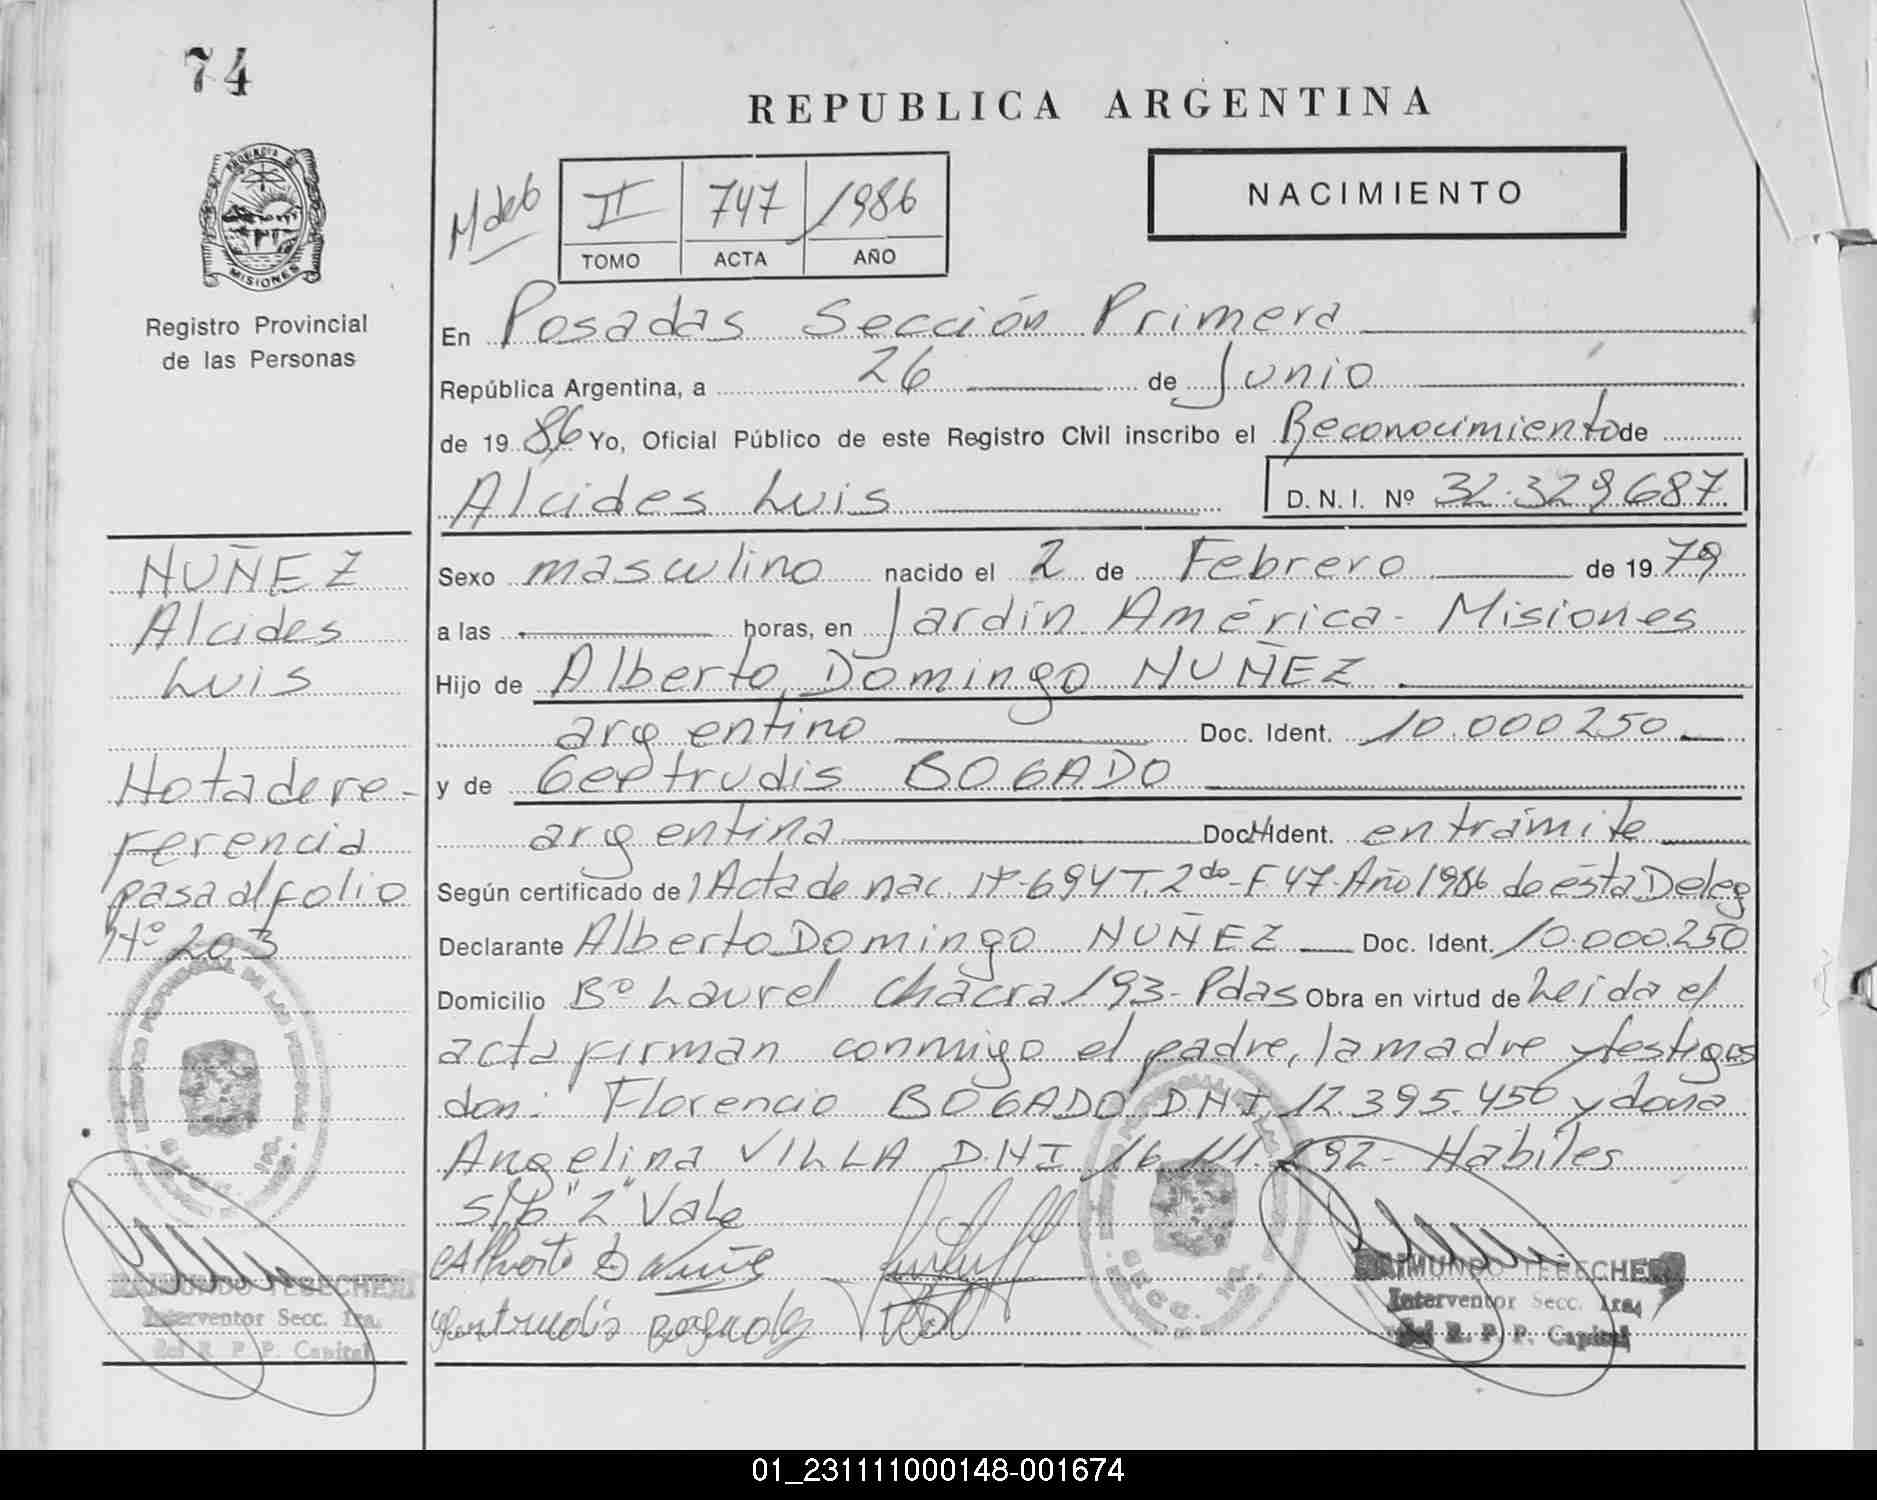 74
REPUBLICA ARGENTINA
NACIMIENTO
II 747 1986
TOMO ACTA AÑO
PROVINCIA DE
MISIONES
Registro Provincial
de las Personas
En Posadas Sección Primera
República Argentina, a 26 de Junio
de 19 86 Yo, Oficial Público de este Registro Civil inscribo el Reconocimiento de
Alcides Luis D.N.I. Nº 32.329.687
NUÑEZ
Alcides
Luis
Nota de re-
ferencia
pasa al folio
Nº 203
Sexo masculino nacido el 2 de Febrero de 19 79
a las horas, en Jardín América - Misiones
Hijo de Alberto Domingo NUÑEZ
argentino Doc. Ident. 10.000.250
y de Gertrudis BOGADO
argentina Doc. Ident. en trámite
Según certificado de Acta de nac. Nº 694 T. 2do - F 47 - Año 1986 de ésta Deleg
Declarante Alberto Domingo NUÑEZ Doc. Ident. 10.000.250
Domicilio Bº Laurel Chacra 193 - Pdas Obra en virtud de Leida el
acta firman conmigo el padre, la madre y testigos
don: Florencio BOGADO DNI 12.395.450 y doña
Angelina VILLA D.N.I 16.111.292 - Hábiles
s/b "2" Vale
Alberto D Nuñe
Gertrudis Bogado
RAIMUNDO TEBECHERI
Interventor Secc. 1ra.
del R. P. P. Capital
RAIMUNDO TEBECHERI
Interventor Secc. 1ra.
del R. P. P. Capital
01_231111000148-001674